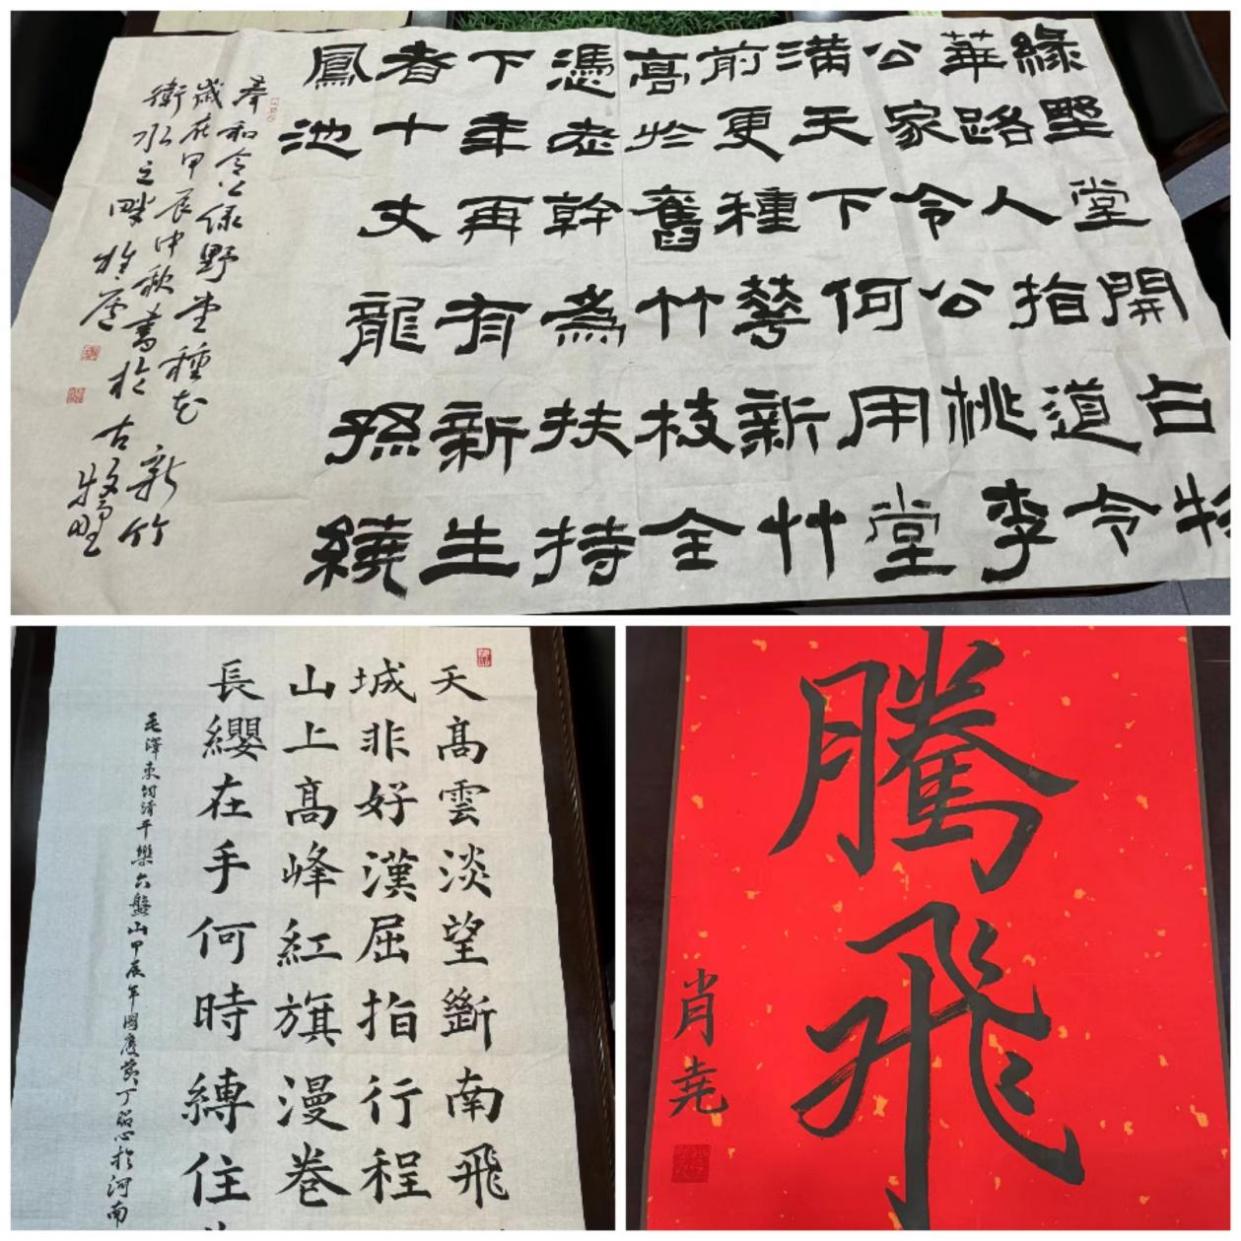 綠墅堂開占物
華路人指道令
公家令公桃李
滿天下何用堂
前更種花新竹
高於舊竹枝全
憑老幹為扶持
下年再有新生
者十丈龍孫繞
鳳池
奉和令公绿野堂種花新竹
歲在甲辰中秋書於古牧野
衛水之畔惟廬
天高雲淡望斷南飛
城非好漢屈指行程
山上高峰紅旗漫卷
長纓在手何時縛住
毛澤東詞清平樂六盤山甲辰年國慶節丁心於河南
騰飛
肖尭